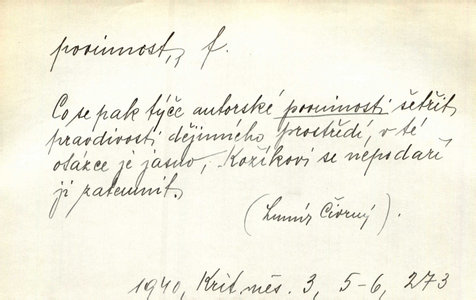 povinnost, f.
Co se pak týče autorské povinnosti šetřit
pravdivosti dějinného prostředí, v té
otázce je jasno, Kožíkovi se nepodaří
ji zatemnit.
(Lumír Čivrný).
1940, Krit. měs. 3, 5-6, 273